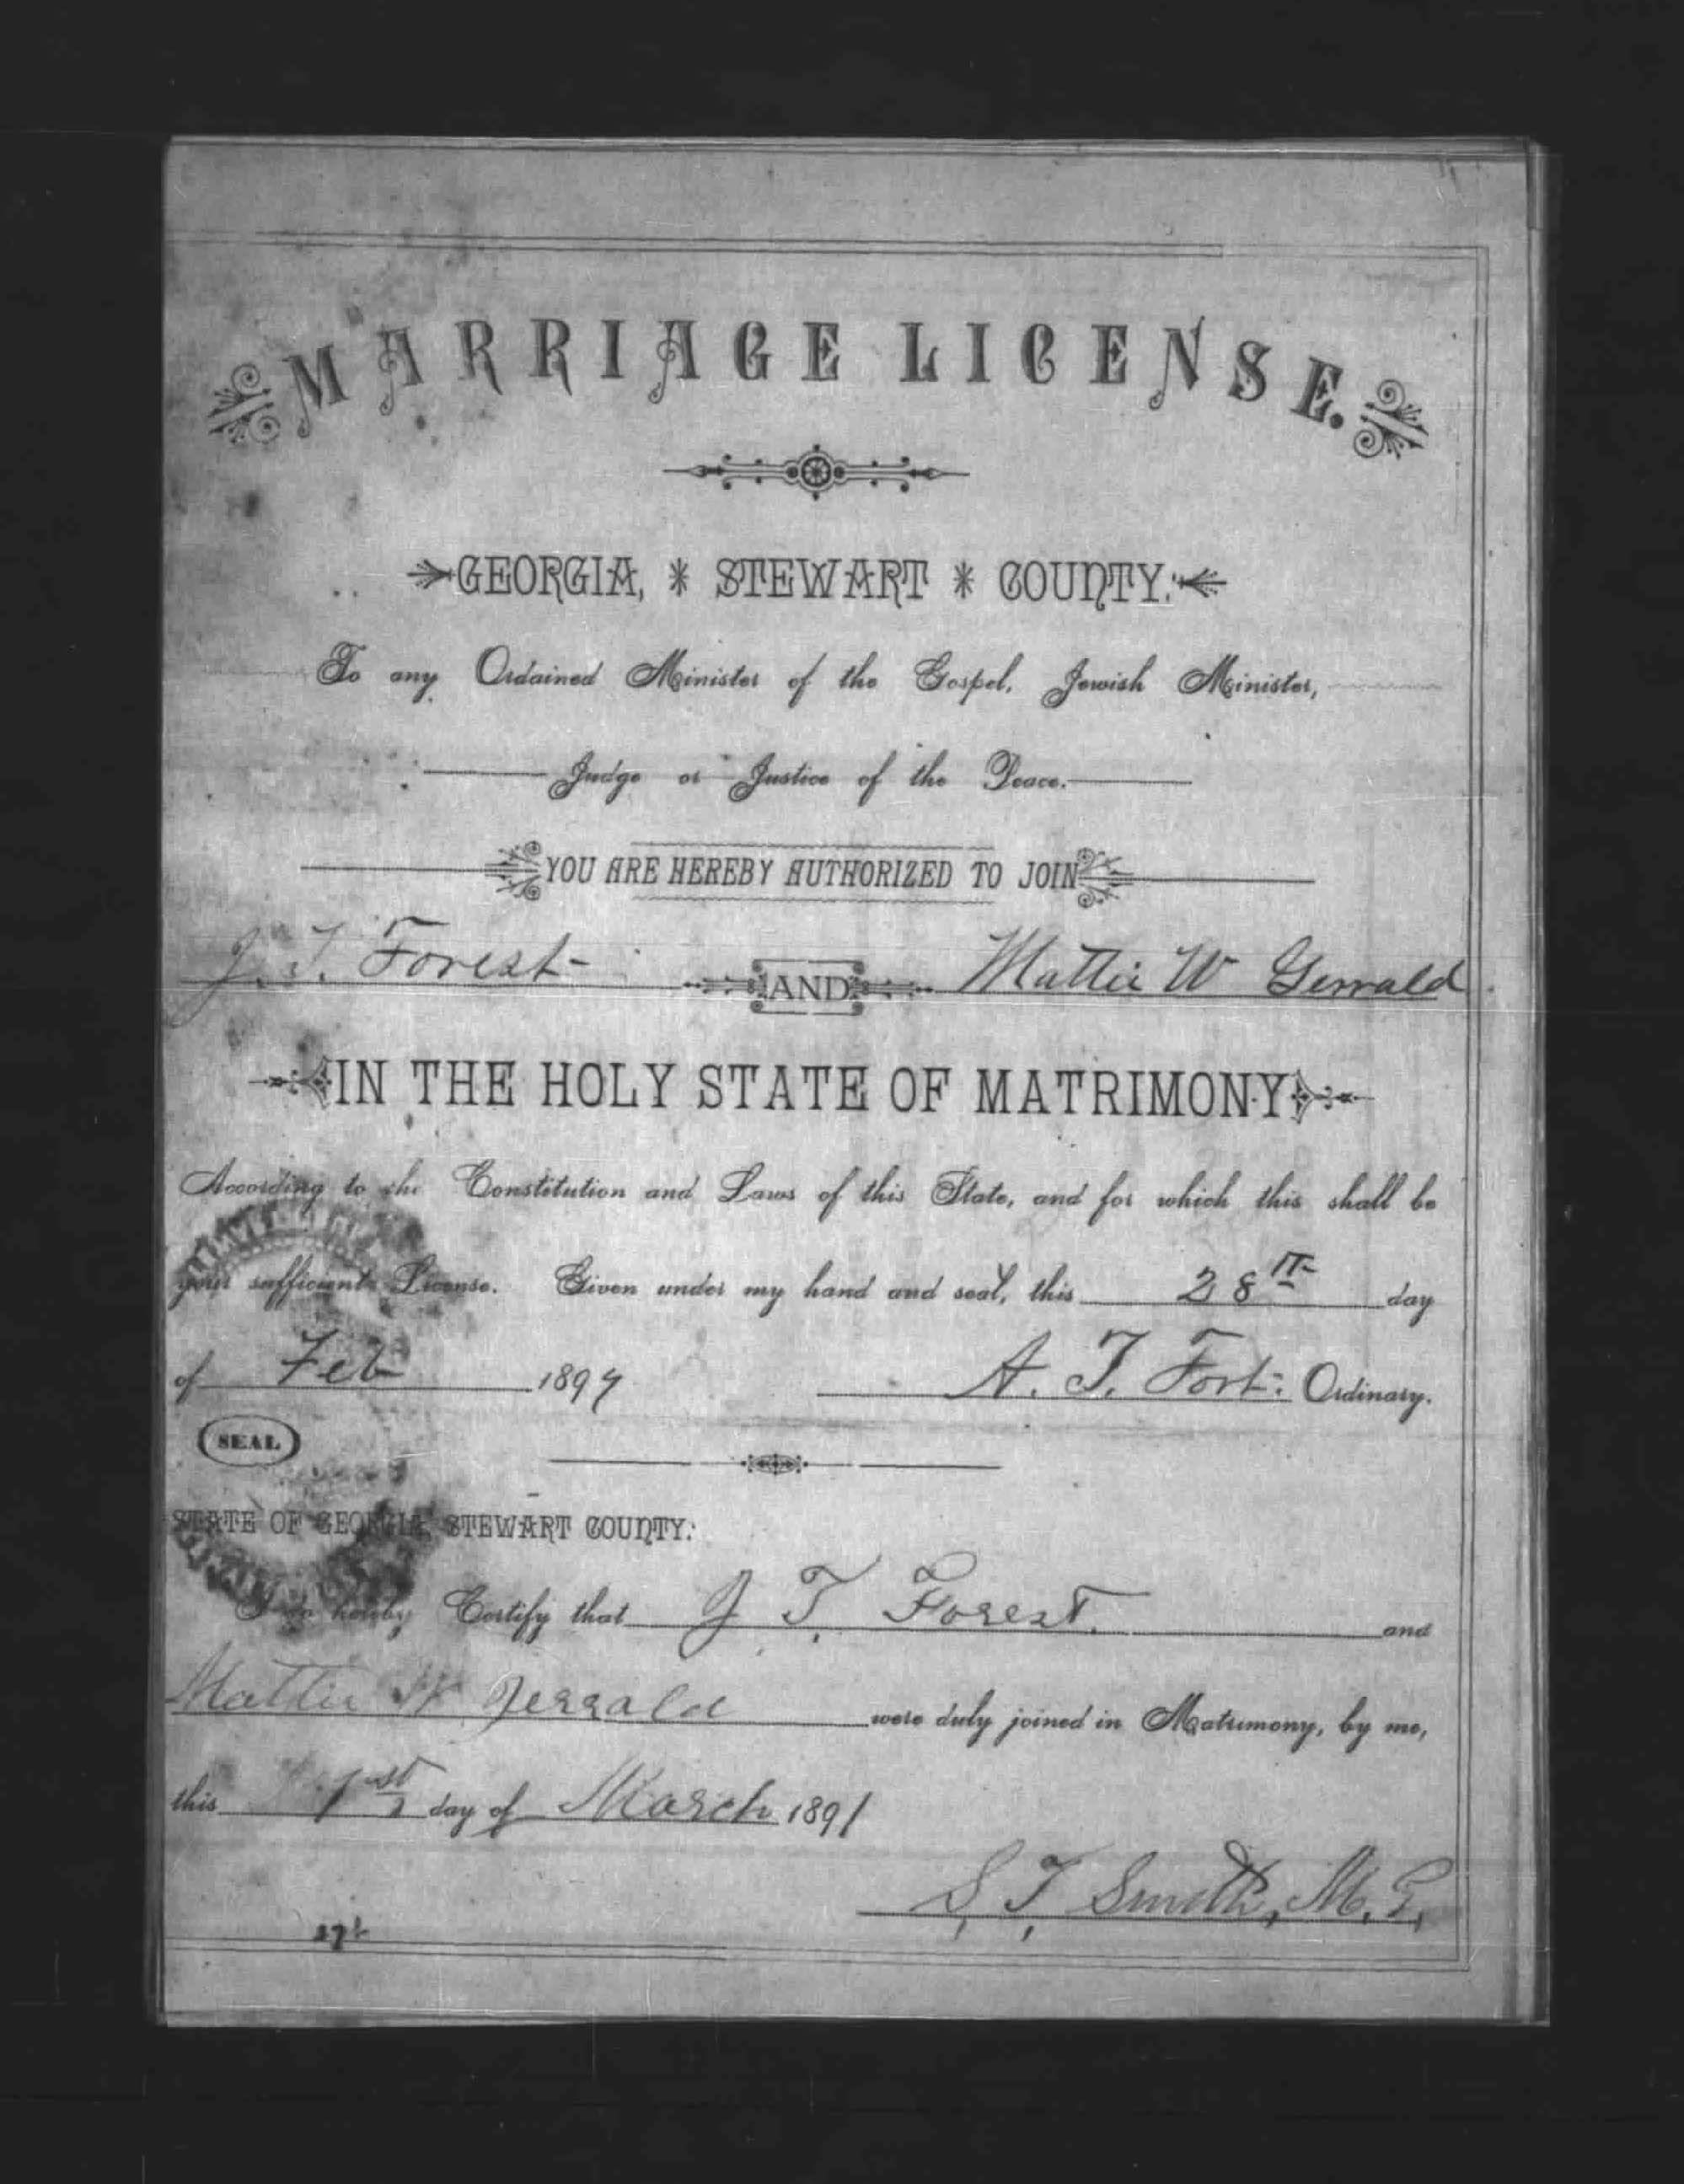 MARRIAGE LICENSE.
GEORGIA, * STEWART * COUNTY:
To any Ordained Minister of the Gospel, Jewish Minister,
Judge or Justice of the Peace.
YOU ARE HEREBY AUTHORIZED TO JOIN
J. T. Forest AND Mattie W Gerrald
IN THE HOLY STATE OF MATRIMONY
According to the Constitution and Laws of this State, and for which this shall be
your sufficient License. Given under my hand and seal, this 28th day
of Feb 189 A. T. Fort: Ordinary.
SEAL
STATE OF GEORGIA, STEWART COUNTY:
I do hereby Certify that J T, Forest. and
Mattie W Jerrald were duly joined in Matrimony, by me,
this 1st day of March 1891
S, T, Smith, M. G.